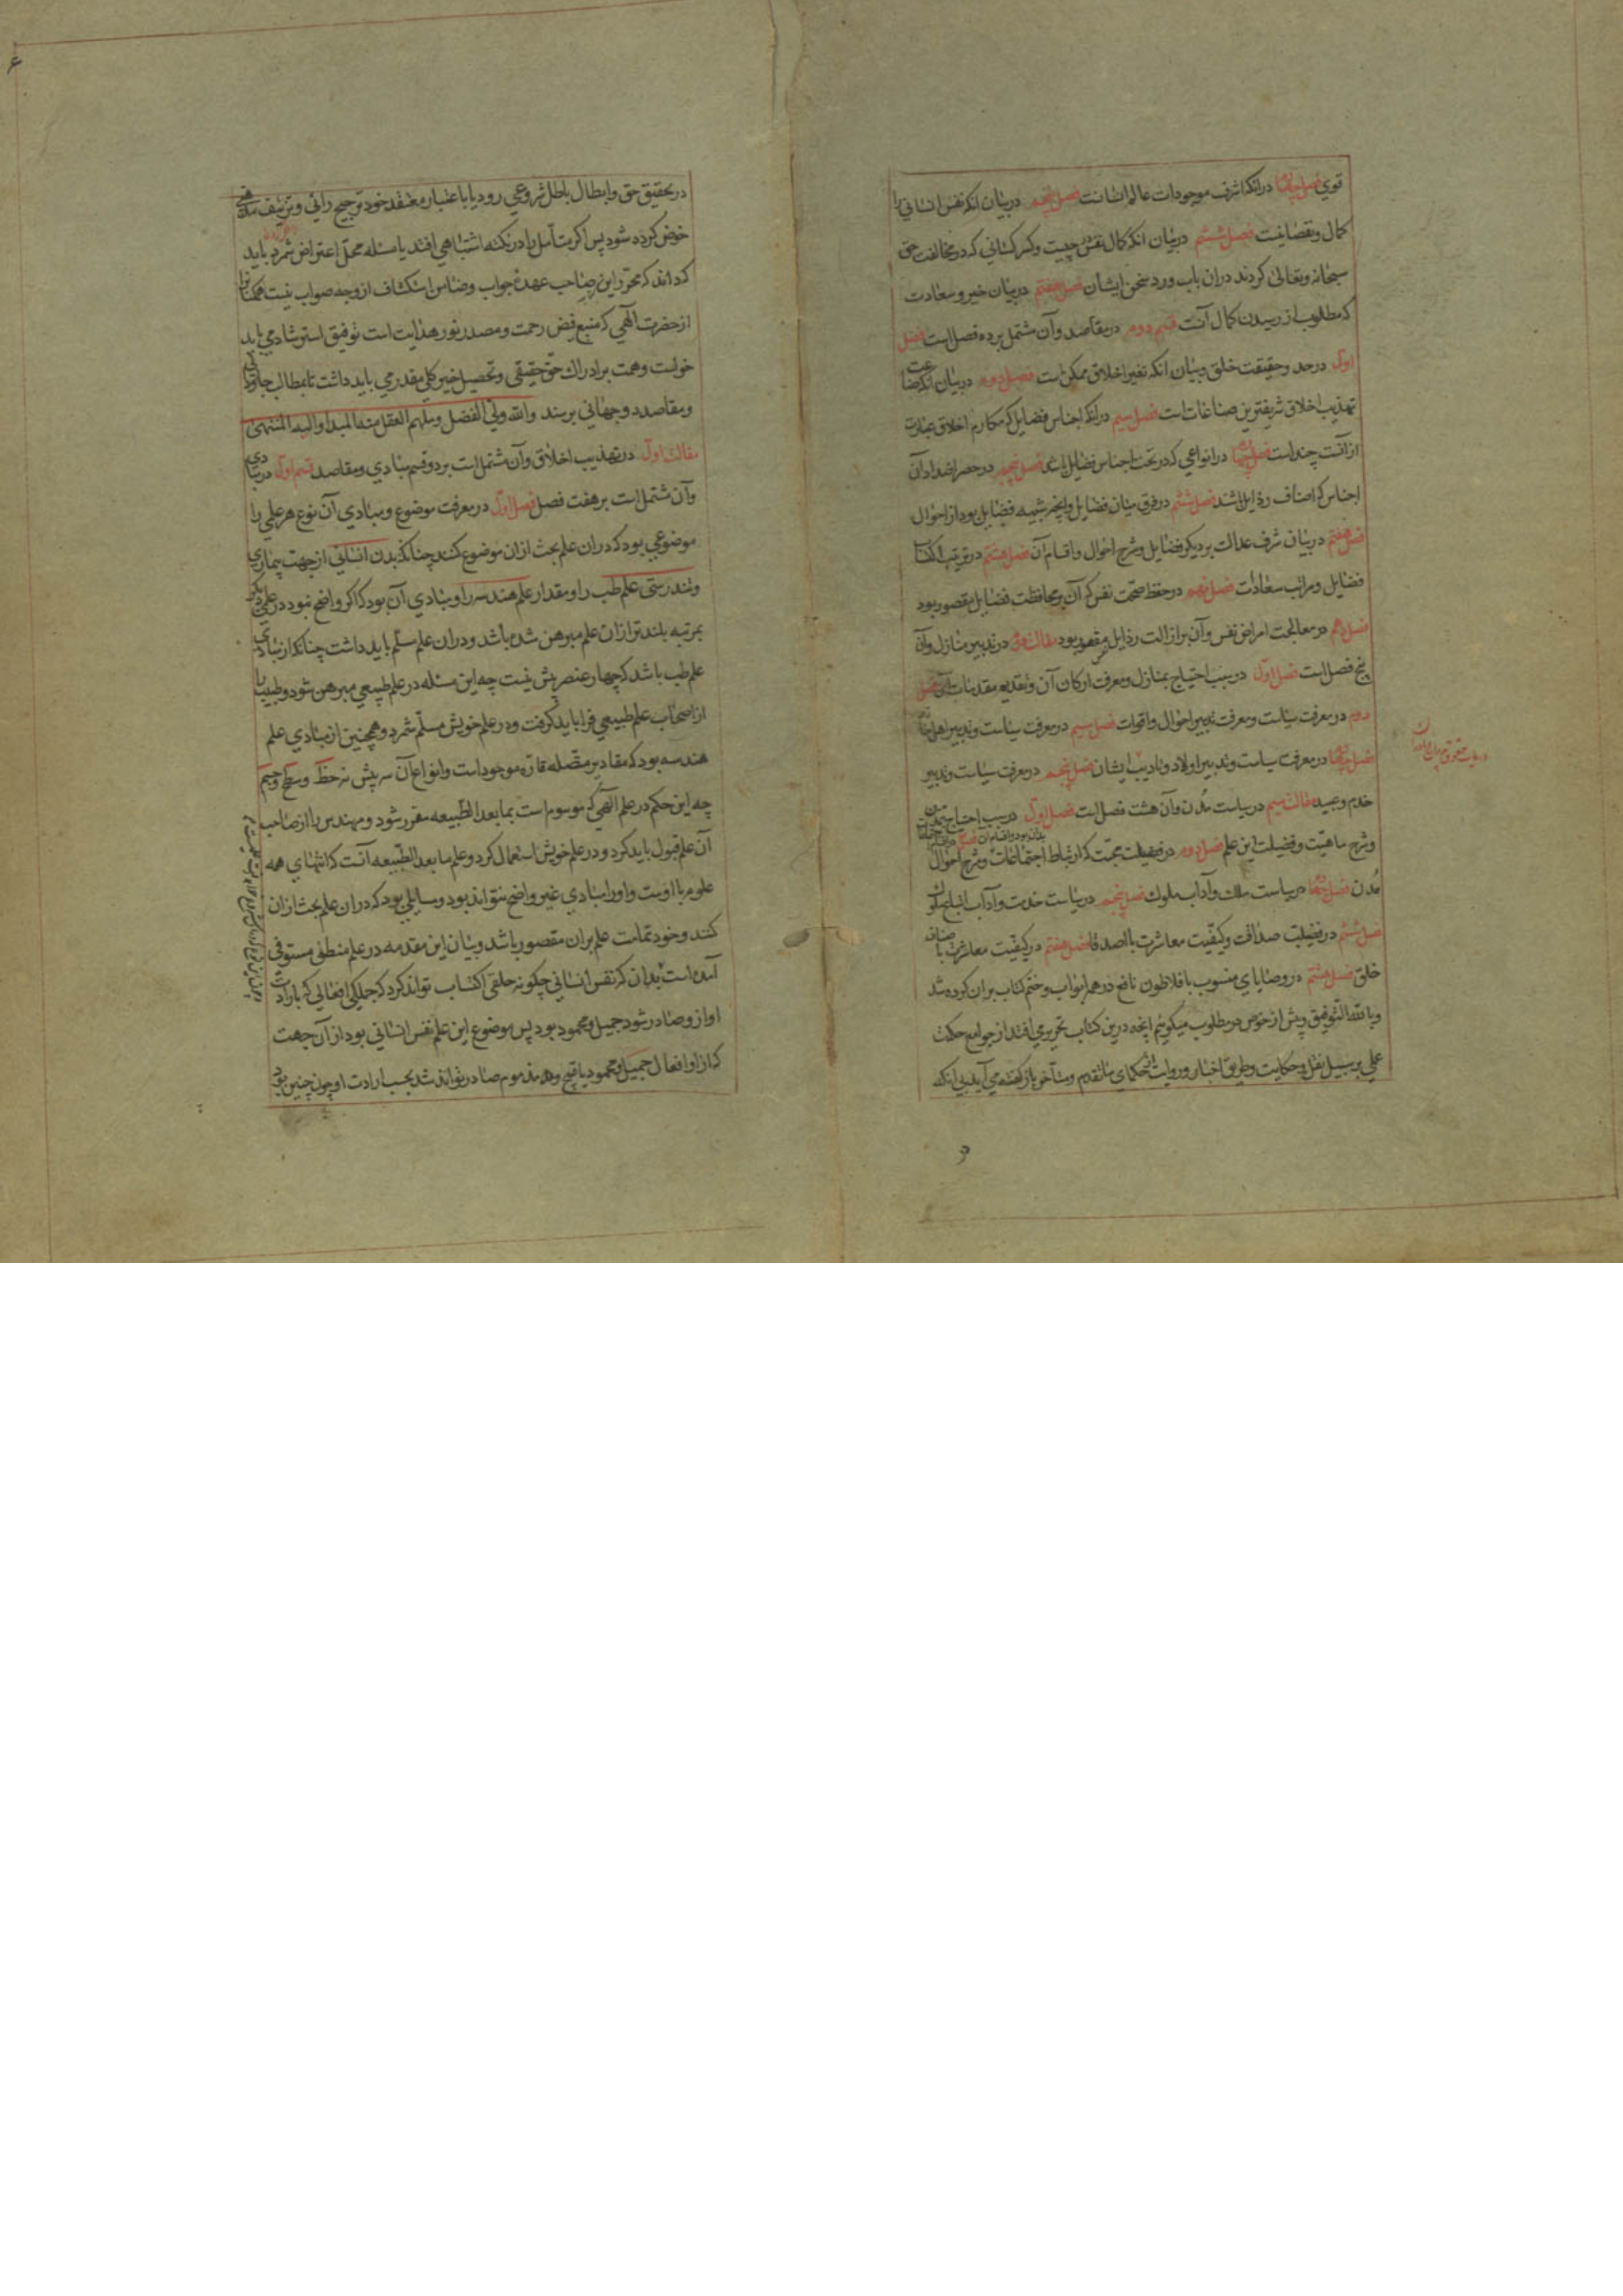 قوي فصل چهارم در انکه اشرف موجودات عالم انسانست فصل پنجم در بیان انکه نفس انسانی را
کمال و نقصانیست فصل ششم در بیان انکه کمال نفس در چیست و کسر کسانی که در مخالفت حق
سبحانه وتعالی کردند دران باب و رد سخن ایشان فصل هفتم در بیان خیر و سعادت
که مطلوب از رسیدن کمال آنست قسم دوم در مقاصد و آن مشتمل بر ده فصل است فصل
اول در حد و حقیقت خلق و بیان انکه تغیر اخلاق ممکن است فصل دوم در بیان انکه صناعت
تهذیب اخلاق شریفترین صناعات است فصل سیم در انکه اجناس فضایل که مکارم اخلاق عبارت
از آنست چند است فصل چهارم در انواعی که در تحت اجناس فضایل باشد فصل پنجم در حصر اضداد آن
اجناس که اصناف رذایل باشد فصل ششم در فرق میان فضایل و انچه شبیه فضایل بود از احوال
فصل هفتم در بیان شرف عدالت بر دیکر فضایل و شرح احوال و اقسام آن فصل هشتم در ترتیب اکتساب
فضایل و مراتب سعادات فصل نهم در حفظ صحت نفس که آن بر محافظت فضایل مقصور بود
فصل دهم در معالجت امراض نفس و آن بر ازالت رذایل مقصور بود مقالت دوم در تدبیر منازل و آن
پنج فصل است فصل اول در سبب احتیاج بمنازل و معرفت ارکان آن و تقدیم مقدمات آن فصل
دوم در معرفت سیاست و معرفت تدبیر احوال و اقوات فصل سیم در معرفت سیاست و تدبیر اهل خانه
فصل چهارم در معرفت سیاست و تدبیر اولاد و تادیب ایشان فصل پنجم در معرفت سیاست و تدبیر
خدم و عبید مقالت سیم در سیاست مُدن و آن هشت فصل است فصل اول در سبب احتیاج بتمدن
و شرح ماهیّت و فضیلت این علم فصل دوم در فضیلت محبّت که ارتباط اجتماعات بدان بود و اقسام آن و شرح احوال
مُدن فصل چهارم در سیاست ملک و آداب ملوک فصل پنجم در سیاست خدمت و آداب اتباع ملوک
فصل ششم در فضیلت صداقت و کیفّیت معاشرت با اصدقا فصل هفتم در کیفّیت معاشرت با اصناف
خلق فصل هشتم در وصایای منسوب بافلاطون نافع در همه ابواب و ختم کتاب بران کرده شد
وبالله التّوفیق و پیش از خوض در مطلوب میکوییم انچه درین کتاب تحریر می افتد از جوامع حکمت
عملی بر سبیل نقل و حکایت و طریق اخبار و روایت از حکمای متقدم و متأخر باز کفته می آید بی انکه
در تحقیق حق و ابطال باطل شروعی رود یا باعتبار معتقد خود ترجیح رائی و تزییف مذهبی
خوض کرده شود پس اکر متأمل را در نکته اشتباهی افتد یا مسئله محلّ اعتراض شمرد باید
که داند که محرّر این صاحب عهدهٔ جواب و ضامن استکشاف از وجه صواب نیست همکنان را
از حضرت الهی که منبع فیض رحمت و مصدر نور هدایت است توفیق استرشاد می باید
خواست و همت بر ادراک حقّ حقیقی و تحصیل خیر کلی مقدر می باید داشت تا بمطالب جاودانی
و مقاصد دوجهانی برسند والله ولی الفضل و ملهم العقل منه المبدا و الیه المنتهی
مقالت اول در تهذیب اخلاق و آن مشتمل است بر دو قسم مبادی و مقاصد قسم اول در مبادی
و آن مشتمل است بر هفت فصل فصل اول در معرفت موضوع و مبادی آن نوع هر علمی را
موضوعی بود که دران علم بحث ازان موضوع کنند چنانکه بدن انسانی از جهت بیماری
و تندرستی علم طب را و مقدار علم هندسه را و مبادی آن بود که اکر واضح نبود در علمی دیکر
بمرتبه بلندتر ازان علم مبرهن شده باشد و دران علم مسلّم باید داشت چنانکه از مبادی
علم طب باشد که چهار عنصر بیش نیست چه این مسئله در علم طبیعی مبرهن شود و طبیب را
از اصحاب علم طبیعی فرا باید کرفت و در علم خویش مسلّم شمرد و همچنین از مبادی علم
هندسه بود که مقادیر متّصله قارّه موجود است و انواع آن سه بیش نه خط و سطح و جسم
چه این حکم در علم الهی که موسوم است بما بعد الطّبیعه مقرر شود و مهندس را از صاحب
آن علم قبول باید کرد و در علم خویش استعمال کرد و علم ما بعد الطّبیعه آنست که انتهای همه
علوم با اوست و او را مبادی غیر واضح نتواند بود و مسایلی بود که دران علم بحث ازان
کنند و خود تمامت علم بران مقصور باشد و بیان این مقدمه در علم منطق مستوفی
آمده است بدان که نفس انسانی چکونه خلقی اکتساب تواند کرد که جملکی افعالی که بارادت
او ازو صادر شود جمیل و محمود بود پس موضوع این علم نفس انسانی بود از آن جهت
که از او افعال جمیل و محمود یا قبیح و مذموم صادر تواند شد بحسب ارادت او چون چنین بود